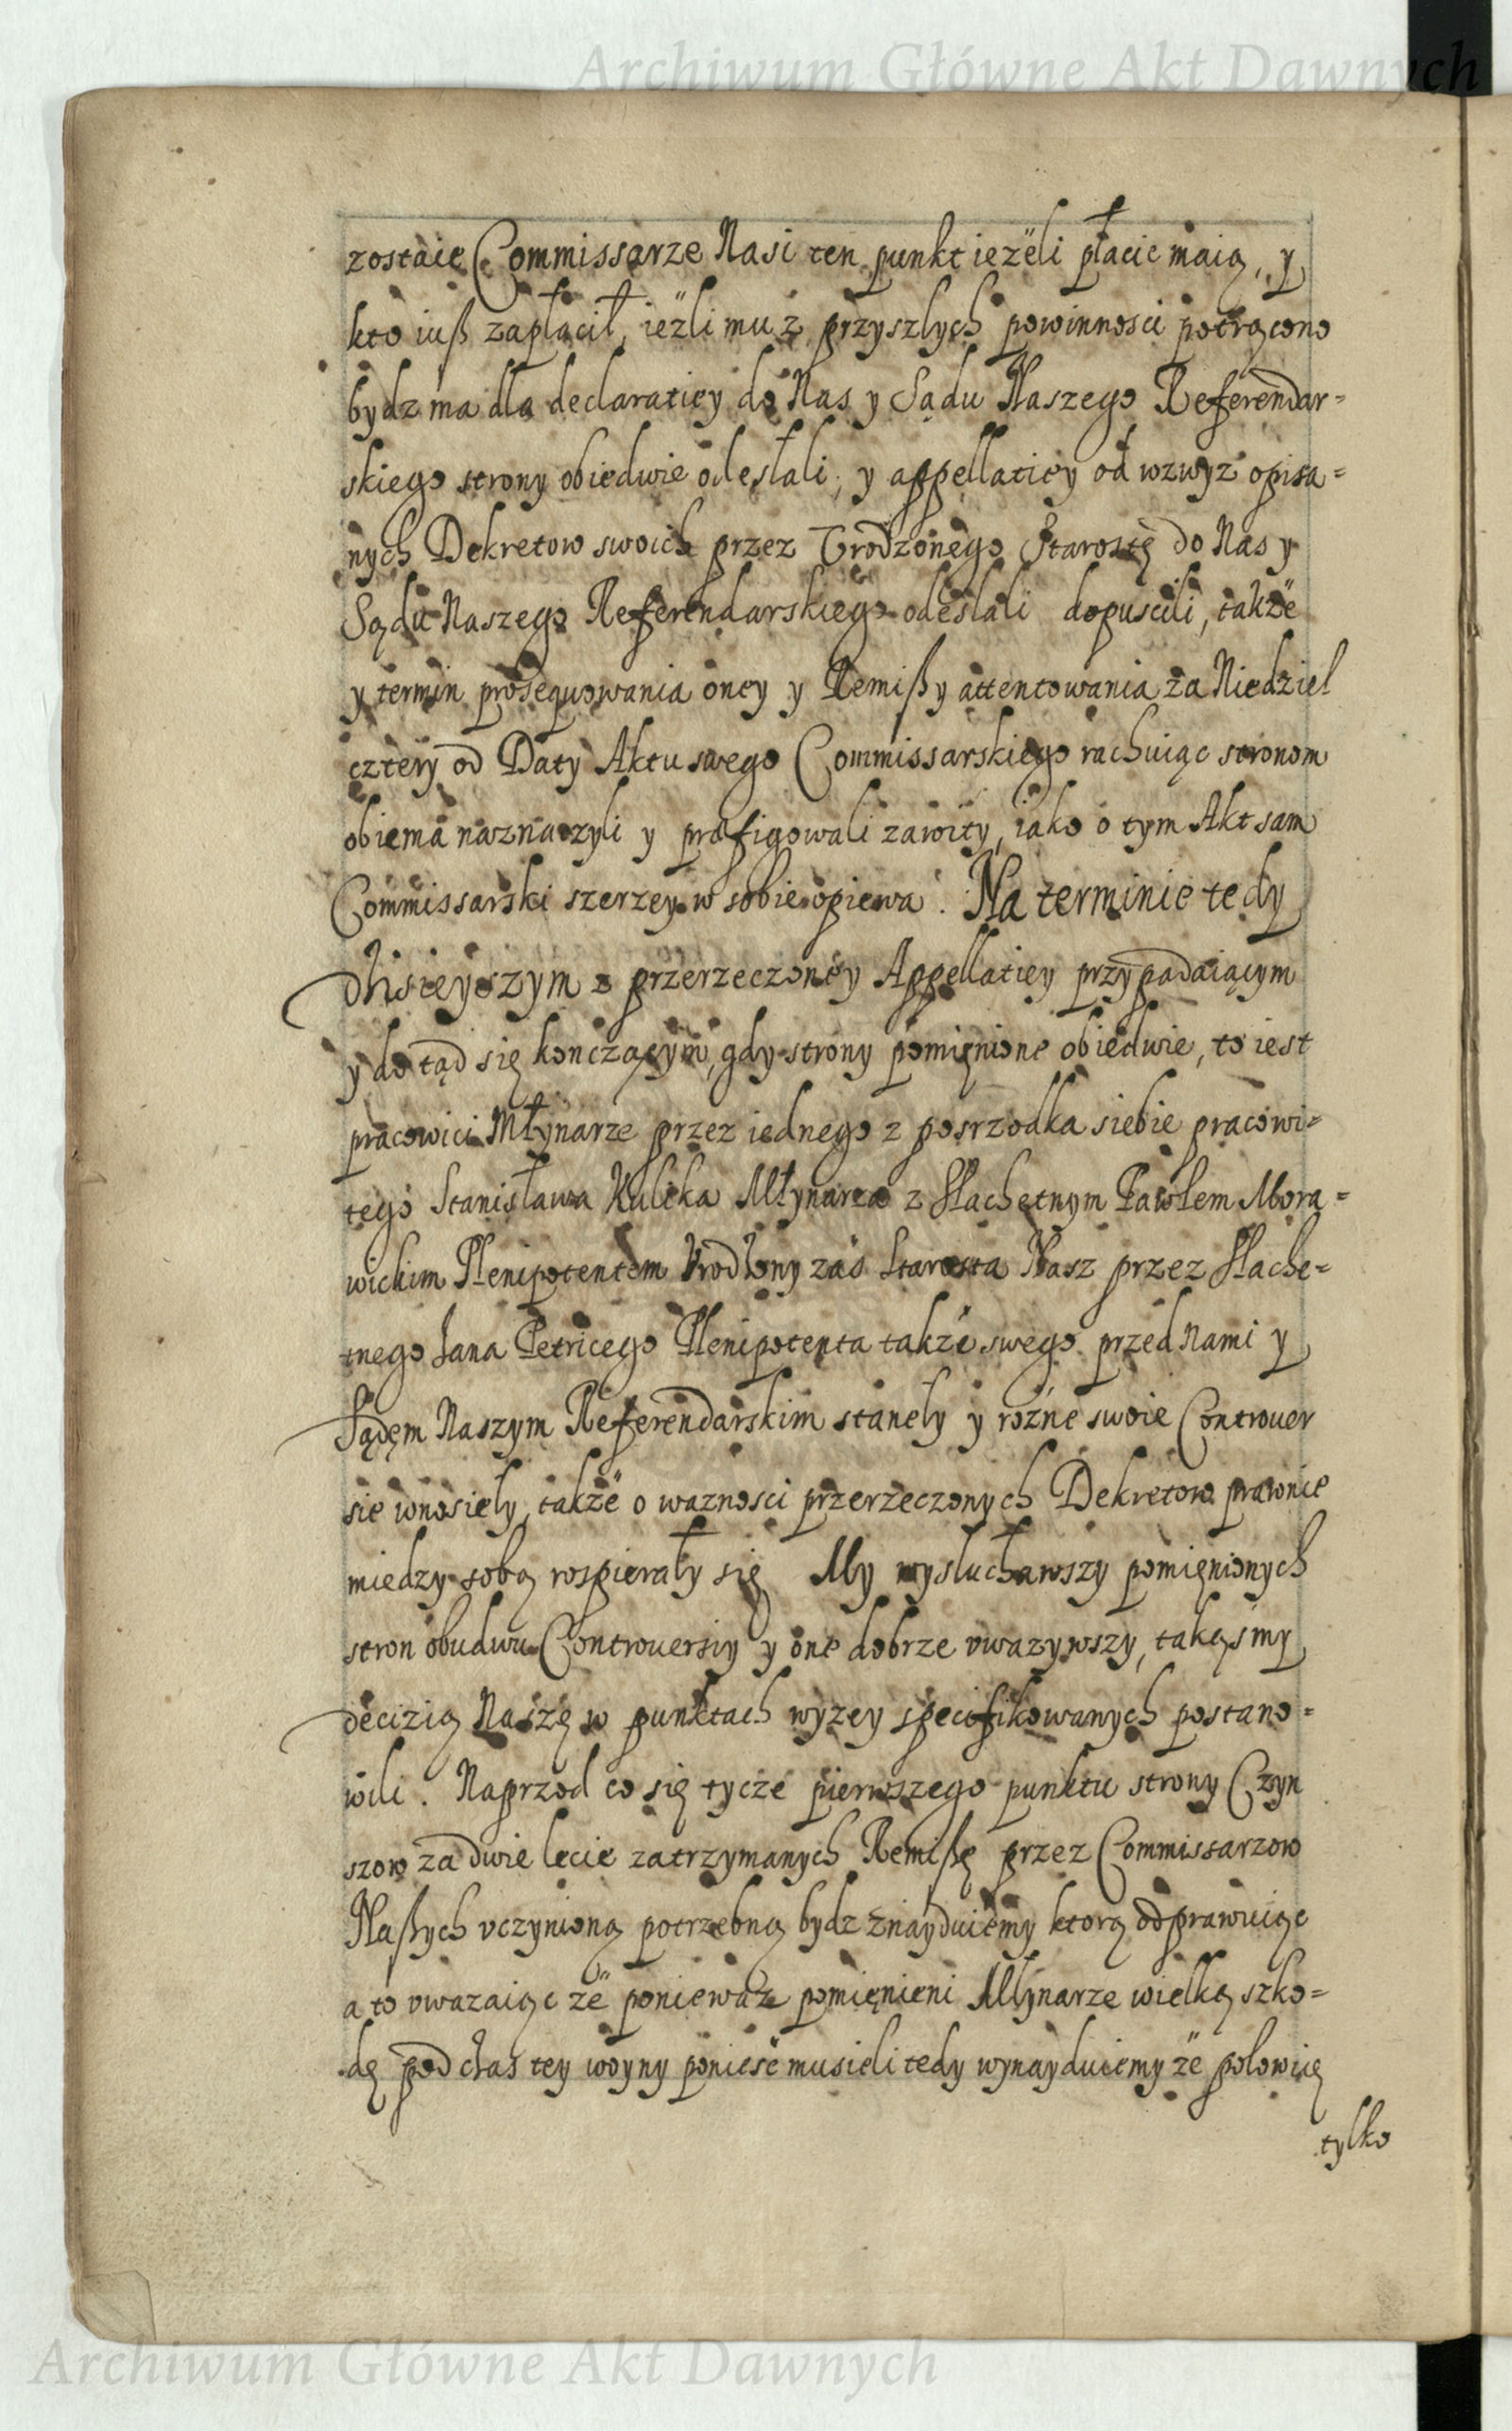 Archiwum Główne Akt Dawnych
zostaie Commissarze Nasi ten punkt ieżeli płacic maią, y
kto iuß zapłącił, ieżli mu z przyszlych powinnosci potrącono
bydz ma dla declaratiey do Nas y Sądu Naszego Referendar=
skiego strony obiedwie odesłali, y appellatiey od wzwyż opisa=
nych Dekretow swoich przez Vrodzonego Starostę do Nas y
Sądu Naszego Referendarskiego odeslali dopuscili, także
y termin prosequowania oney y Remißy attentowania za Niedziel
cztery od Daty Aktu swego Commissarskiego rachuiąc stronom
obiema naznaczyli y præfigowali zawity, iako o tym Akt sam
Commissarski szerzey w sobie opiewa. Na terminie tedy
dzisieyszym z przerzeczoney Appellatiey przypadaiącym
y do tąd się konczącym, gdy strony pomięnione obiedwie, to iest
pracowici Młynarze przez iednego z posrzodka siebie pracowi=
tego Stanisława Kulika Młynarza z Slachetnym Pawłem Mora=
wickim Plenipotentem Vrodzony zaś Starosta Nasz przez Slache=
tnego Jana Petricego Plenipotenta także swego przed Nami y
Sądęm Naszym Referendarskim stanęly y rożne swoie Controuer
sie wnosieły, także o waznosci przerzeczonych Dekretow prawnie
miedzy sobą rospierały się My wysłuchawszy pomięnionych
stron obudwu Controuersiy y one dobrze vwazywszy, takąsmy
decizią Naszę w punktach wyzey specifikowanych postano=
wili. Naprzod co się tycze pierwszego punktu strony Czyn
szow za dwie lecie zatrzymanych Remißę przez Commissarzow
Naßych vczynioną potrzebną bydz znayduiemy ktorą odprawuiąc
a to vwazaiąc że poniewaz pomięnieni Młynarze wielką szko=
dę pod czas tey woyny poniesć musieli tedy wynayduiemy że polowicę
tylko
Archiwum Główne Akt Dawnych